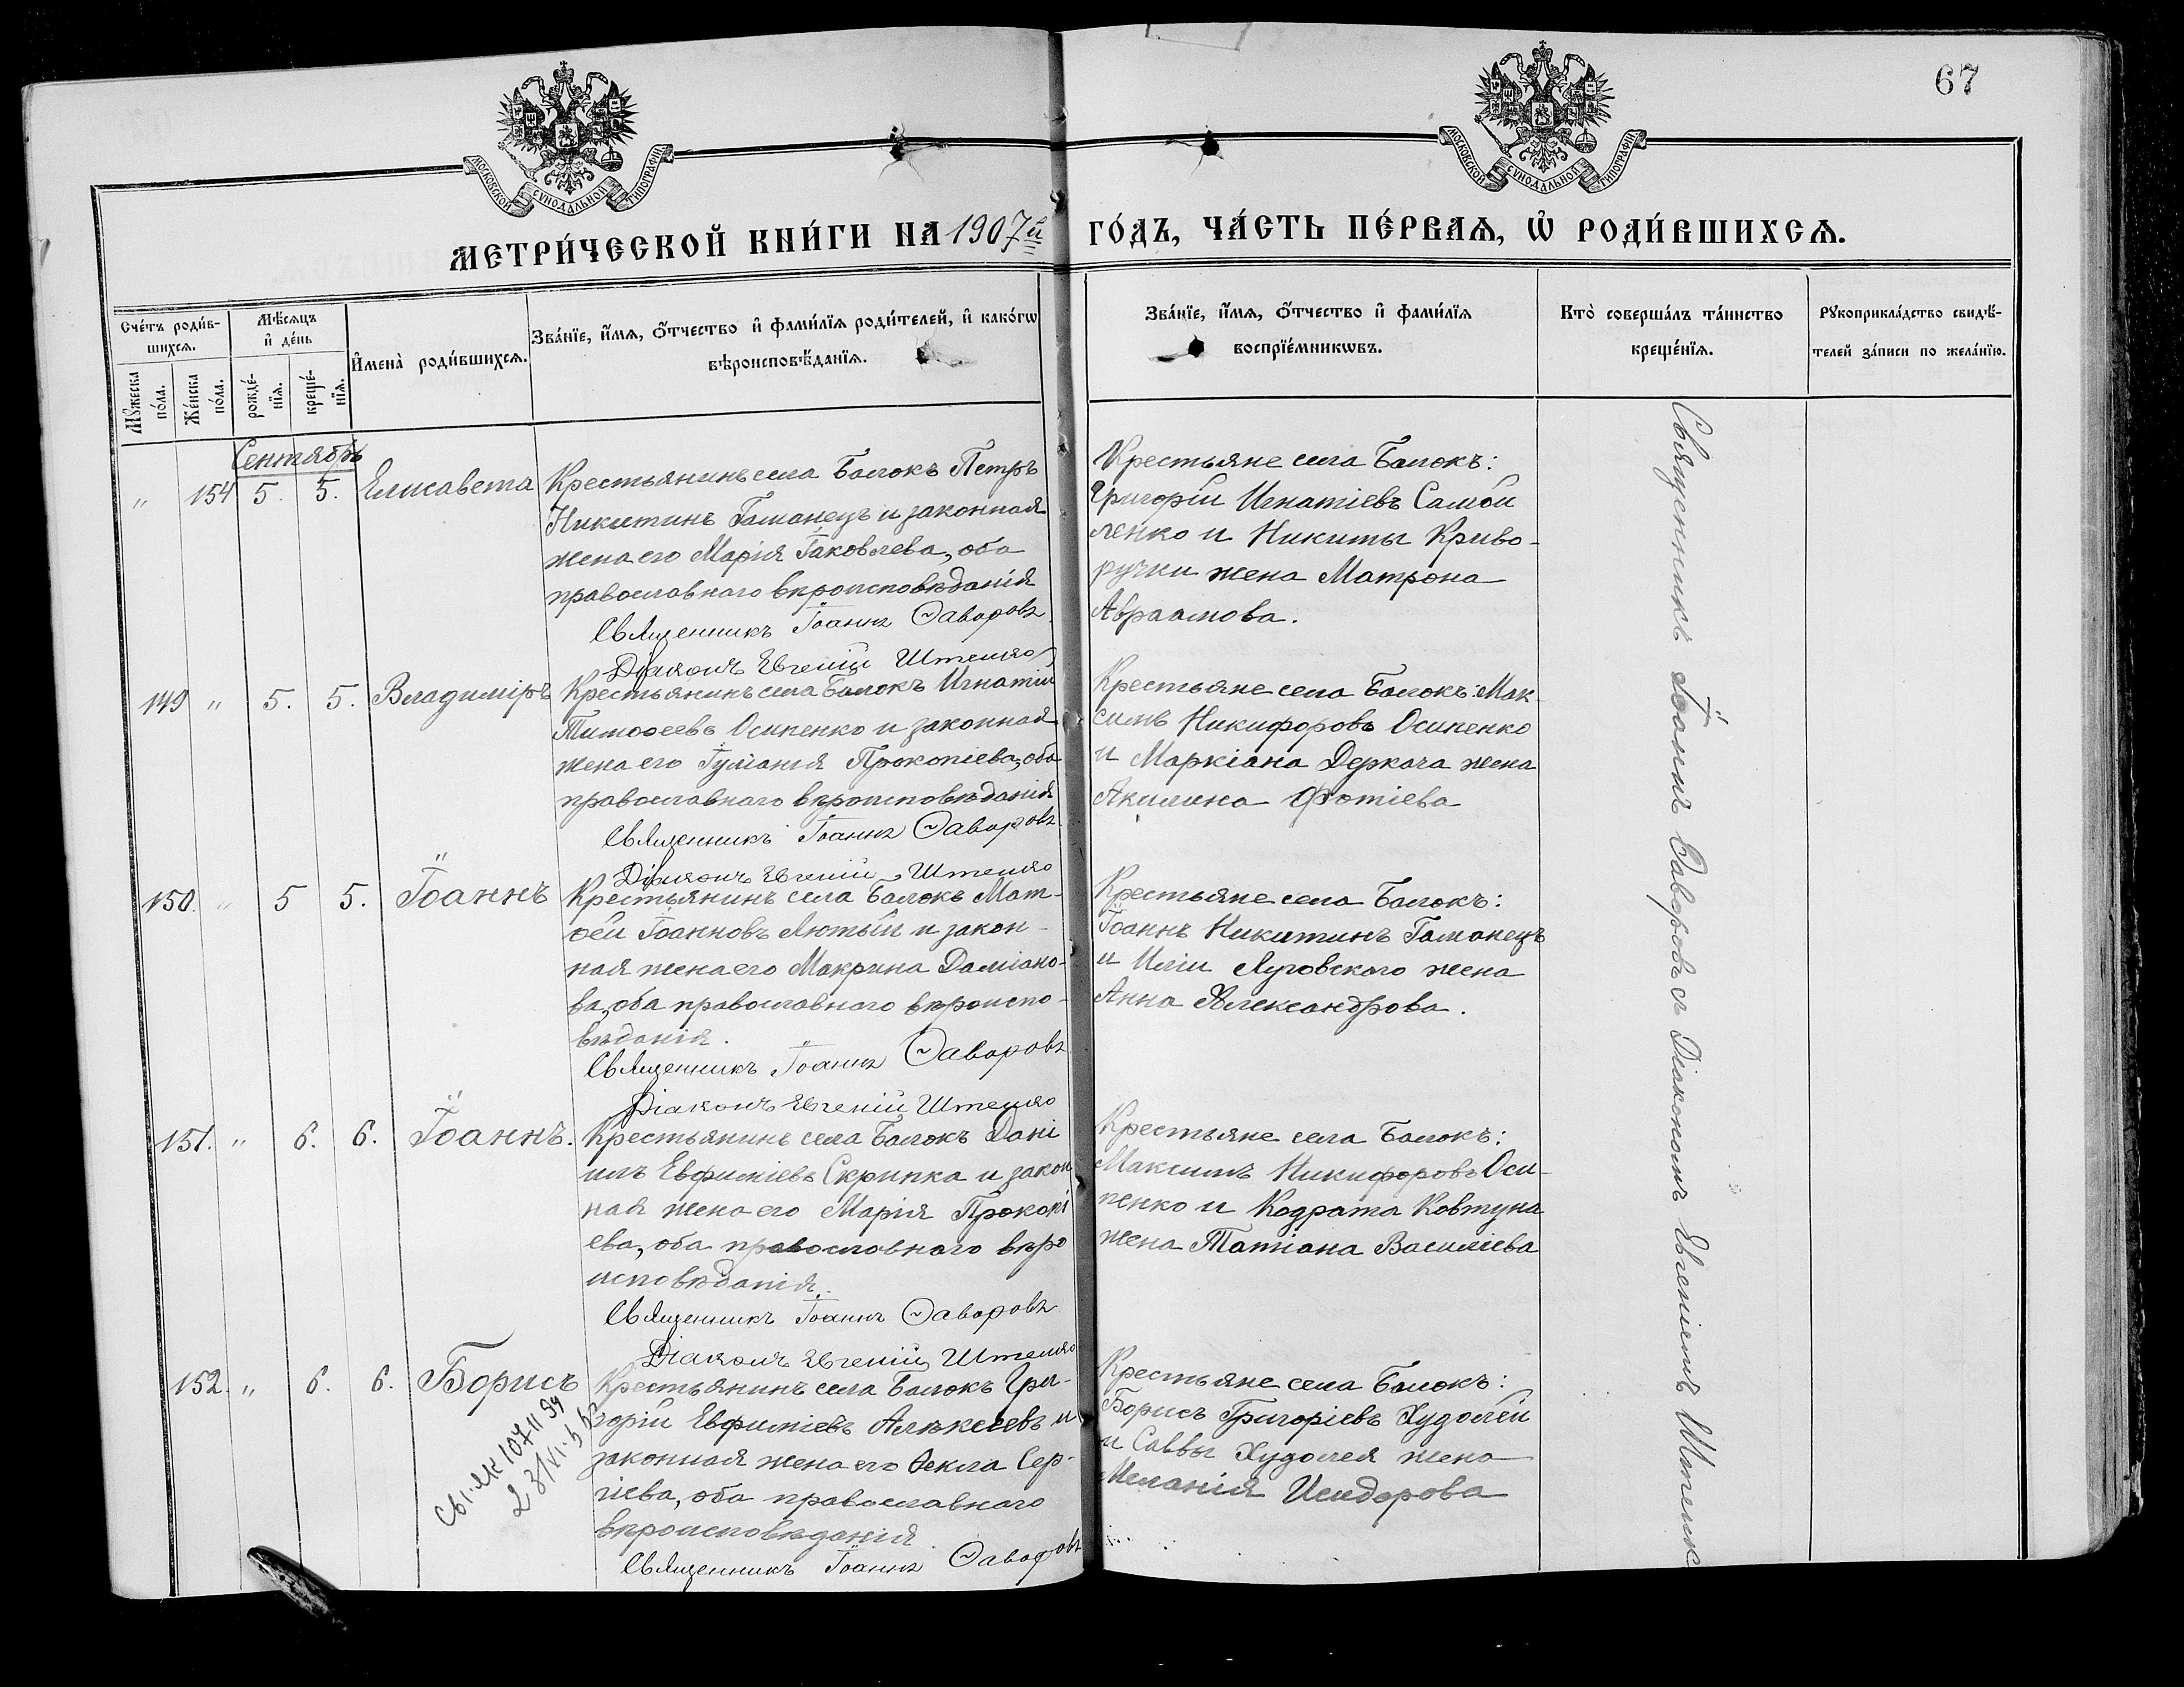 67
МОСКОВСКОЙ СУНОДАЛЬНОЙ ТИПОГРАФІИ
МОСКОВСКОЙ СУНОДАЛЬНОЙ ТИПОГРАФІИ
МЕТРИ́ЧЕСКОЙ КНИ́ГИ НА 1907й ГО́ДЪ, ЧА́СТЬ ПЕ́РВАѦ, Ѡ҆ РОДИ́ВШИХСѦ.
Сче́тъ роди́в-
шихсѧ.
Мꙋ́жеска
по́ла.
Же́нска
по́ла.
Мѣ́сѧцъ
и҆ де́нь
рожде́-
нїѧ.
креще́-
нїѧ.
И҆мена̀ роди́вшихсѧ.
Зва́нїе, и҆́мѧ, ѻ҆́тчество и҆ фами́лїѧ роди́телей, и҆ како́гѡ
вѣроисповѣ́данїѧ.
Зва́нїе, и҆́мѧ, ѻ҆́тчество и҆ фами́лїѧ
воспрїе́мникѡвъ.
Кто̀ соверша́лъ та́инство
креще́нїѧ.
Рꙋкоприкла́дство свидѣ́-
телей за́писи по жела́нїю.
Сентябрь
" 154 5. 5. Елисавета
Крестьянинъ села Балокъ Петръ
Никитинъ Гаманецъ и законная
жена его Марія Іаковлева, оба
православнаго вѣроисповѣданія
Священникъ Іоаннъ Ѳаворовъ
Діаконъ Евгеній
Крестьяне села Балокъ:
Григорій Игнатіевъ Самой
ленко и Никиты Криво-
ручки жена Матрона
Авраамова.
149 " 5. 5. Владиміръ
Крестьянинъ села Балокъ Игнатій
Тимоѳеевъ Осипенко и законная
жена его Іуліанія Прокопіева, оба
православнаго вѣроисповѣданія
Священникъ Іоаннъ Ѳаворовъ
Діаконъ Евгеній
Крестьяне села Балокъ: Мак
симъ Никифоровъ Осипенко
и Маркіана Деркача жена
Акилина Фотіева
150. " 5 5. Іоаннъ
Крестьянинъ села Балокъ Мат-
ѳей Іоанновъ Лютый и закон-
ная жена его Макрина Даміано-
ва, оба православнаго вѣроиспо-
вѣданія.
Священникъ Іоаннъ Ѳаворовъ
Діаконъ Евгеній
Крестьяне села Балокъ:
Іоаннъ Никитинъ Гаманецъ
и Иліи Луговскаго жена
Анна Александрова.
151. " 6. 6. Іоаннъ.
Крестьянинъ села Балокъ Дані
илъ Евфиміевъ Скрипка и закон
ная жена его Марія Прокопі
ева, оба православнаго вѣро
исповѣданія.
Священникъ Іоаннъ Ѳаворовъ
Діаконъ Евгеній
Крестьяне села Балокъ:
Максимъ Никифоровъ Оси-
пенко и Кодрата Ковтуна
жена Татіана Василіева
152. " 6. 6. Борисъ
Крестьянинъ села Балокъ Гри-
горій Евфиміевъ Алѣксеевъ и
законная жена его Ѳекла Сер-
гіева, оба православнаго
вѣроисповѣданія
Священникъ Іоаннъ Ѳаворовъ
Крестьяне села Балокъ:
Борисъ Григоріевъ Худолей
и Саввы Худолея жена
Меланія Исидорова
Священникъ Іоаннъ Ѳаворовъ съ Діакономъ Евгеніемъ